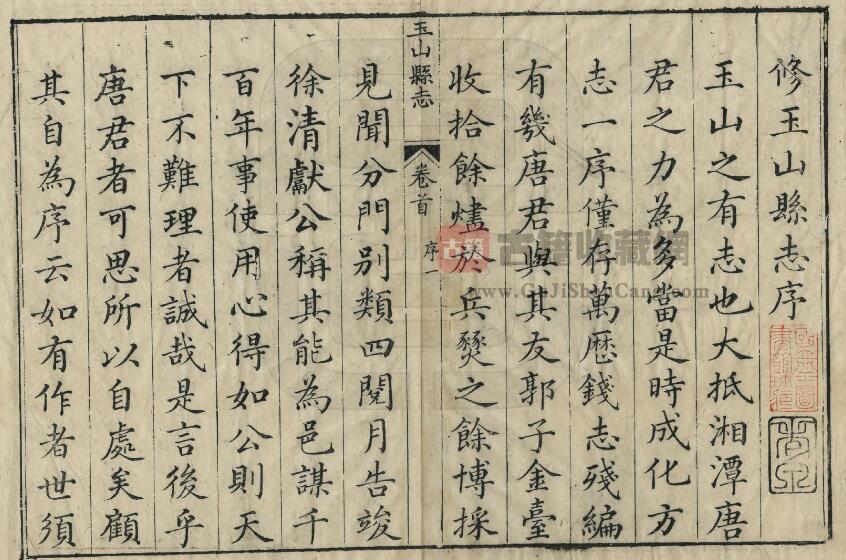 修玉山縣志序
玉山之有志也大抵湘潭唐
君之力為多當是時成化方
志一序僅存萬歷錢志殘編
有幾唐君與其友郭子金臺
收拾餘燼於兵燹之餘博採
玉山縣志
卷首
序一
見聞分門別類四閱月告竣
徐清獻公稱其能為邑謀千
百年事使用心得如公則天
下不難理者誠哉是言後乎
唐君者可思所以自處矣顧
其自為序云如有作者世須
古籍
古籍收藏網
www.GuJiShouCang.com